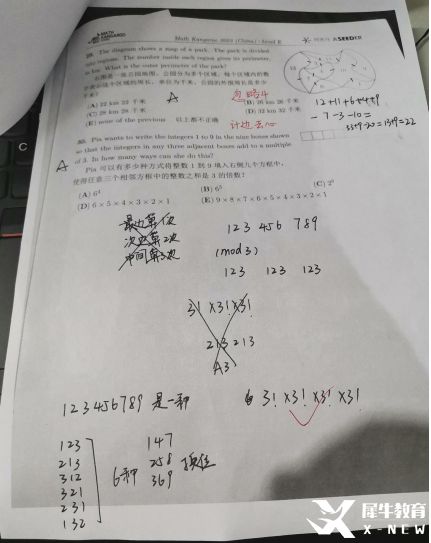 MATH KANGAROO
Math Kangaroo 2023 (China) - Level E
SEEDER
29. The diagram shows a map of a park. The park is divided
into regions. The number inside each region gives its perimeter,
in km. What is the outer perimeter of the park?
右图是一张公园地图，公园分为多个区域，每个区域内的数
字表示这个区域的周长，单位为千米，公园的外围周长是多少
千米？
(A) 22 km 22 千米
(B) 26 km 26 千米
(C) 28 km 28 千米
(D) 32 km 32 千米
(E) none of the previous 以上都不正确
A
忽略4
计边去心
12+11+6+4+9
-7-3-10=
=22
30. Pia wants to write the integers 1 to 9 in the nine boxes shown
so that the integers in any three adjacent boxes add to a multiple
of 3. In how many ways can she do this?
A
Pia 可以有多少种方式将整数 1 到 9 填入右侧九个方框中，
使得任意三个相邻方框中的整数之和是 3 的倍数？
(A) 6⁴
(B) 6⁵
(C) 2⁹
(D) 6 × 5 × 4 × 3 × 2 × 1
(E) 9 × 8 × 7 × 6 × 5 × 4 × 3 × 2 × 1
123 456 789
(mod 3)
123 123 123
3! X3! X3!
213 213
A3
123456789 是一种
6 3! X3! X3! X3!
123
213
312
321
231
132
6种
147
258
369
换位
犀牛教育
X-NEW
C